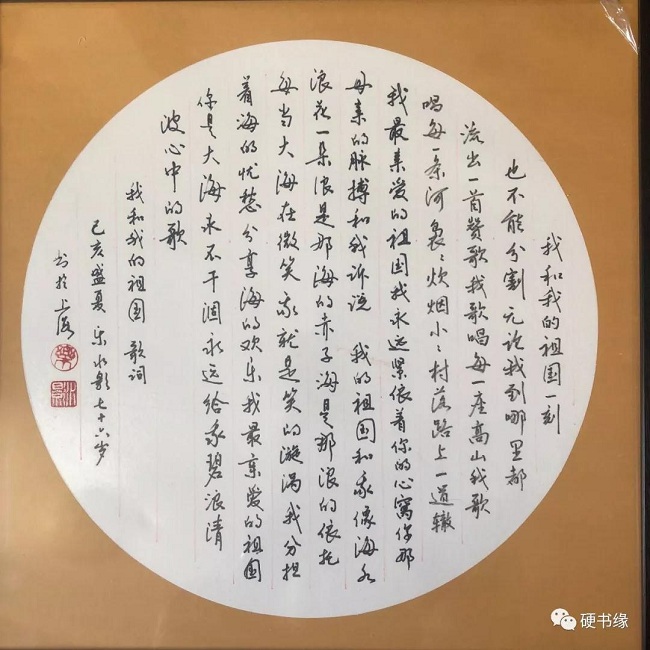 我和我的祖国一刻
也不能分割 无论我到哪里都
流出一首赞歌我歌唱每一座高山我歌
唱每一条河袅〻炊烟小〻村落路上一道辙
我最亲爱的祖国我永远紧依着你的心窝你那
母亲的脉搏和我诉说 我的祖国和我像海水
浪花一朵浪是那海的赤子海是那浪的依托
每当大海在微笑我就是笑的漩涡我分担
着海的忧愁分享海的欢乐我最亲爱的祖国
你是大海永不干涸永远给我碧浪清
波心中的歌
我和我的祖国 歌词
己亥盛夏 乐水彰七十六岁
书于上海
硬书缘